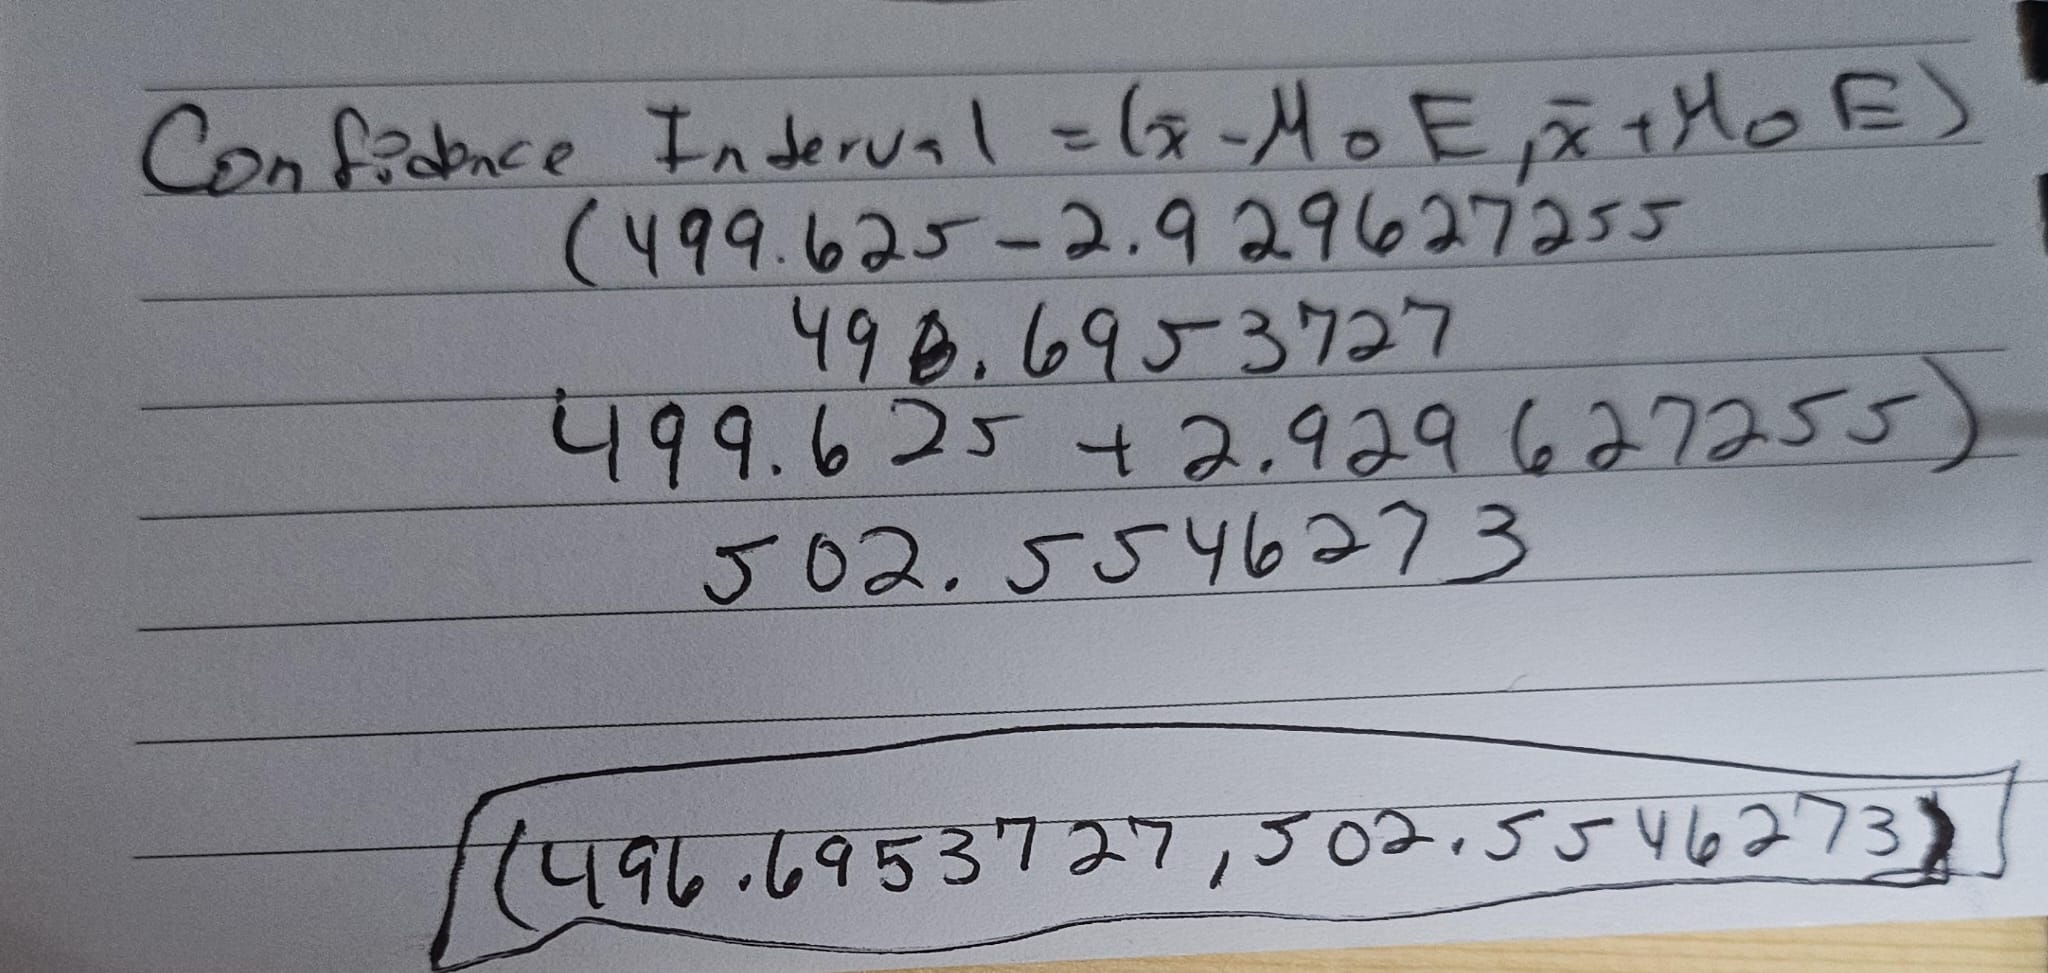 Confidence Interval = (x̄ - MoE, x̄ + MoE)
(499.625 - 2.929627255
496.6953727
499.625 + 2.929627255)
502.5546273
(496.6953727, 502.5546273)